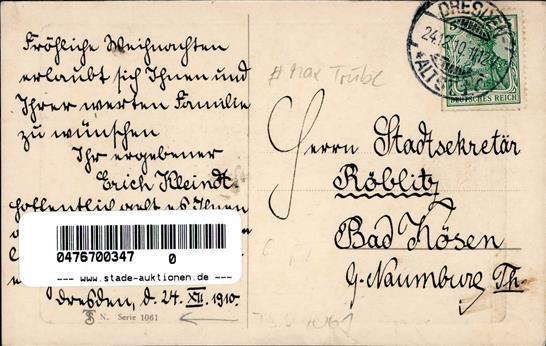 Fröhliche Weihnachten
erlaubt sich Ihnen und
Ihrer werten Familie
zu wünschen
Ihr ergebener
Erich Kleindt.
hoffentlich geht es Ihnen
0476700347 0
--- www.stade-auktionen.de ---
Dresden, d. 24. XII. 1910.
N. Serie 1061
DRESDEN
24.12.10
ALTST.
DEUTSCHES REICH
# Max Trübe
Herrn Stadtsekretär
Röblitz
Bad Kösen
b. Naumburg Th.
1061